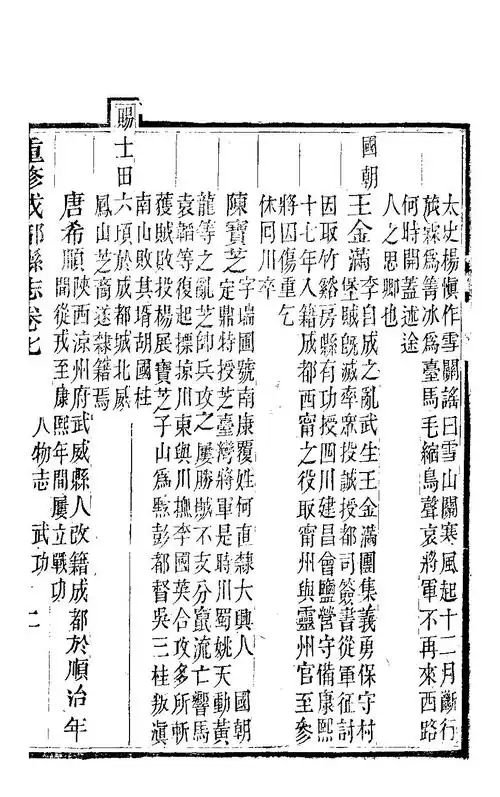 太史楊愼作雪關謠曰雪山關寒風起十二月斷行
旅霖爲箐冰爲臺馬毛縮鳥聲哀將軍不再來西路
何時開蓋述途
人之思卿也
國朝
王金滿李自成之亂武生王金滿團集義勇保守村
堡賊旣滅率衆投誠授都司簽書從軍征討
因取竹谿房縣有功授四川建昌會鹽營守備康熙
十七年入籍成都西甯之役取甯州與靈州官至參
將囚傷重乞
休回川卒
陳寶芝字瑞圃號南康覆姓何直隸大興人 國朝
定鼎特授芝臺灣將軍是時川蜀姚天動黃
龍等之亂芝帥兵攻之屢勝賊不支分竄流亡響馬
袁韜等復起摽掠川東與川撫李國英合攻多所斬
獲賊敗投楊展寶芝子山爲縣彭都督吳三桂叛滇
南山敗其壻胡國柱
賜土田六頃於成都城北威
鳳山芝裔遂隸籍焉
唐希順陝西涼州府武威縣人改籍成都於順治年
間從戎至康熙年間屢立戰功
重修成都縣志卷七 人物志 武功 二